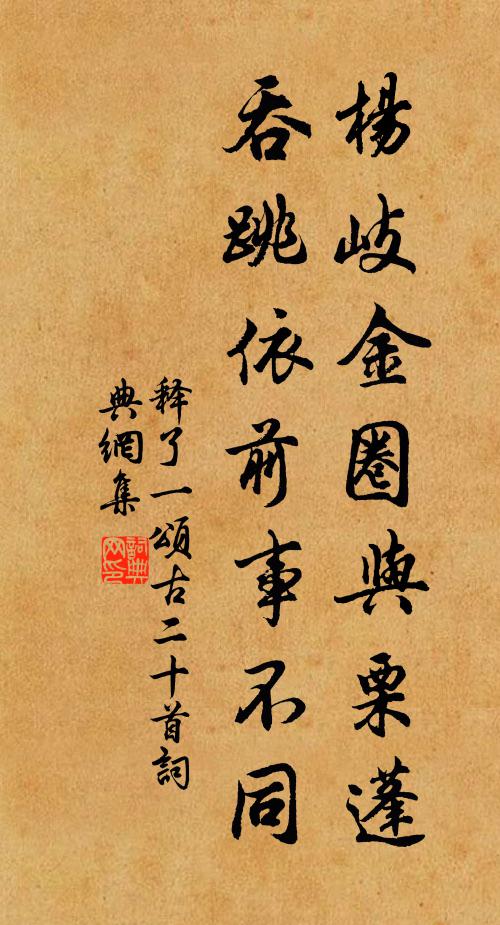 楊岐金圈與栗蓬
吞跳依前事不同
释了一頌古二十首詞
典網集
詞典網印